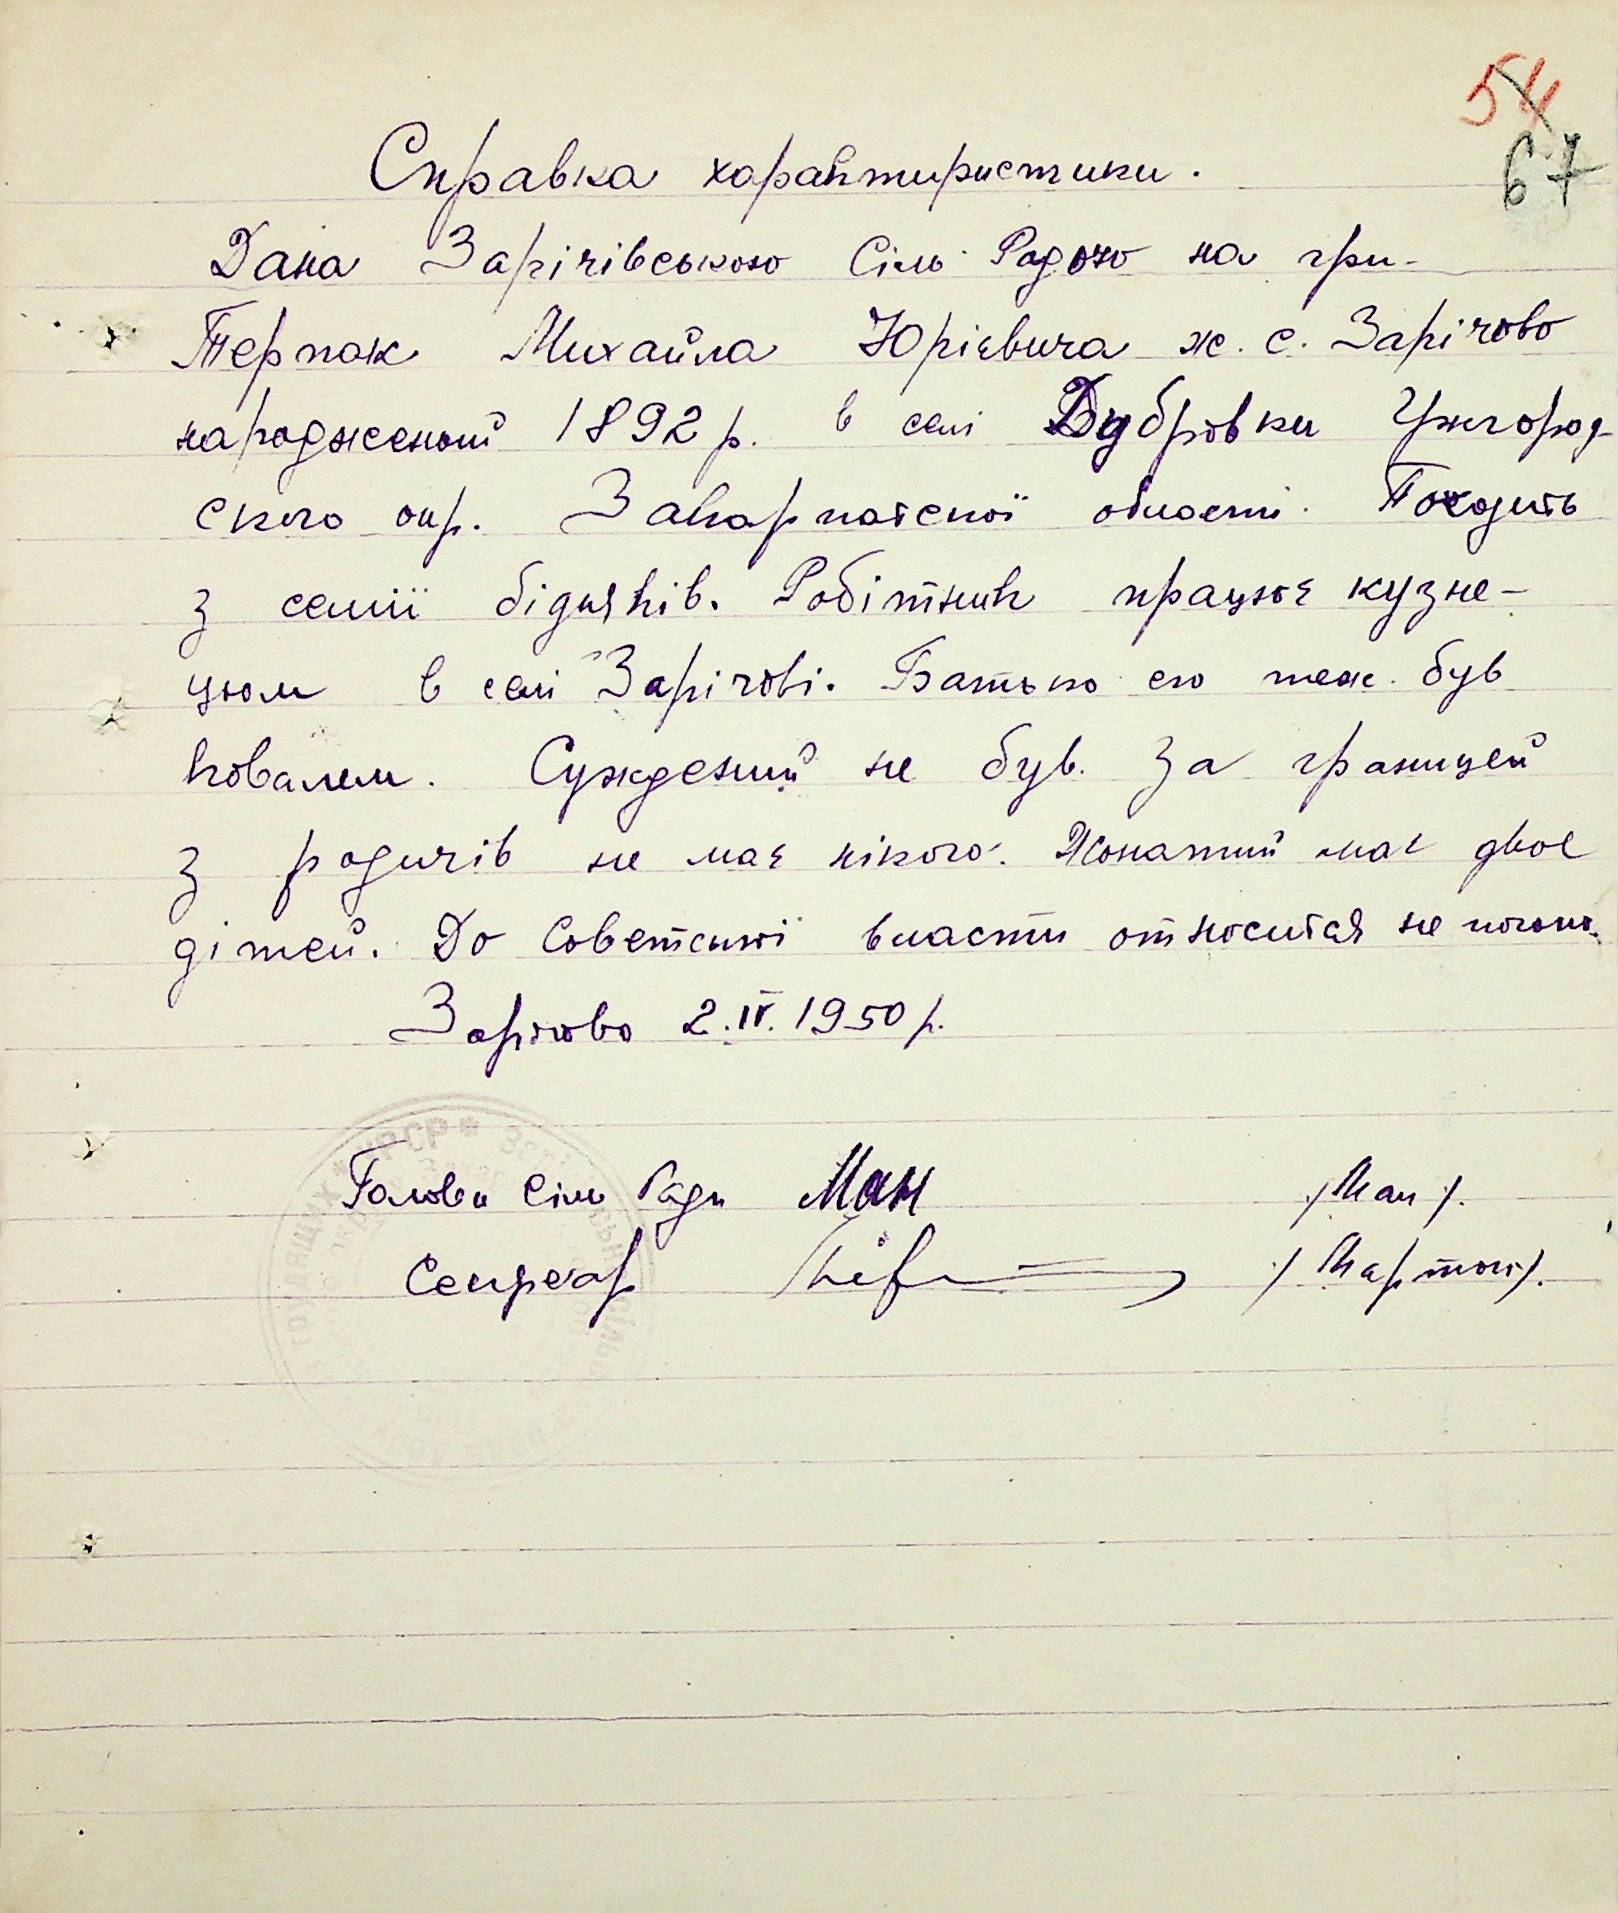 54
67
Справка характиристики.
Дана Зарічівською Сіль Радою на гр.
Терпак Михайла Юрієвича ж. с. Зарічово
народжений 1892 р. в селі Дубрівки Ужгород-
ского окр. Закарпатскої області. Походить
з семії бідняків. Робітник працює кузне-
цьом в селі Зарічові. Батько его теж. був
ковалем. Суждений не був. За границей
з родичів не має нікого. Жонатий має двоє
дітей. До Советскої власти относится не погано.
Зарічово 2.IV.1950 р.
Голова Сіль Ради Ман /Ман/.
Секретар /Мартон/.